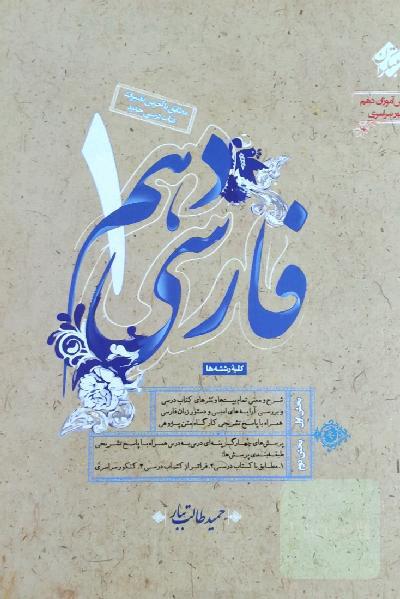 مبتکران
دهم
سراسری
مطابق با آخرین تغییرات
کتاب درسی جدید
فارسی
دهم
۱
کلیهٔ رشته‌ها
بخش اول
شرح و معنی تمام بیت‌ها و نثرهای کتاب درسی
و بررسی آرایه‌های ادبی و دستور زبان فارسی
همراه با پاسخ تشریحی کارگاه متن‌پژوهی
بخش دوم
پرسش‌های چهارگزینه‌ای درس به درس همراه با پاسخ تشریحی
طبقه‌بندی پرسش‌ها:
۱. مطابق با کتاب درسی ۲. فراتر از کتاب درسی ۳. کنکور سراسری
حمید طالب تبار